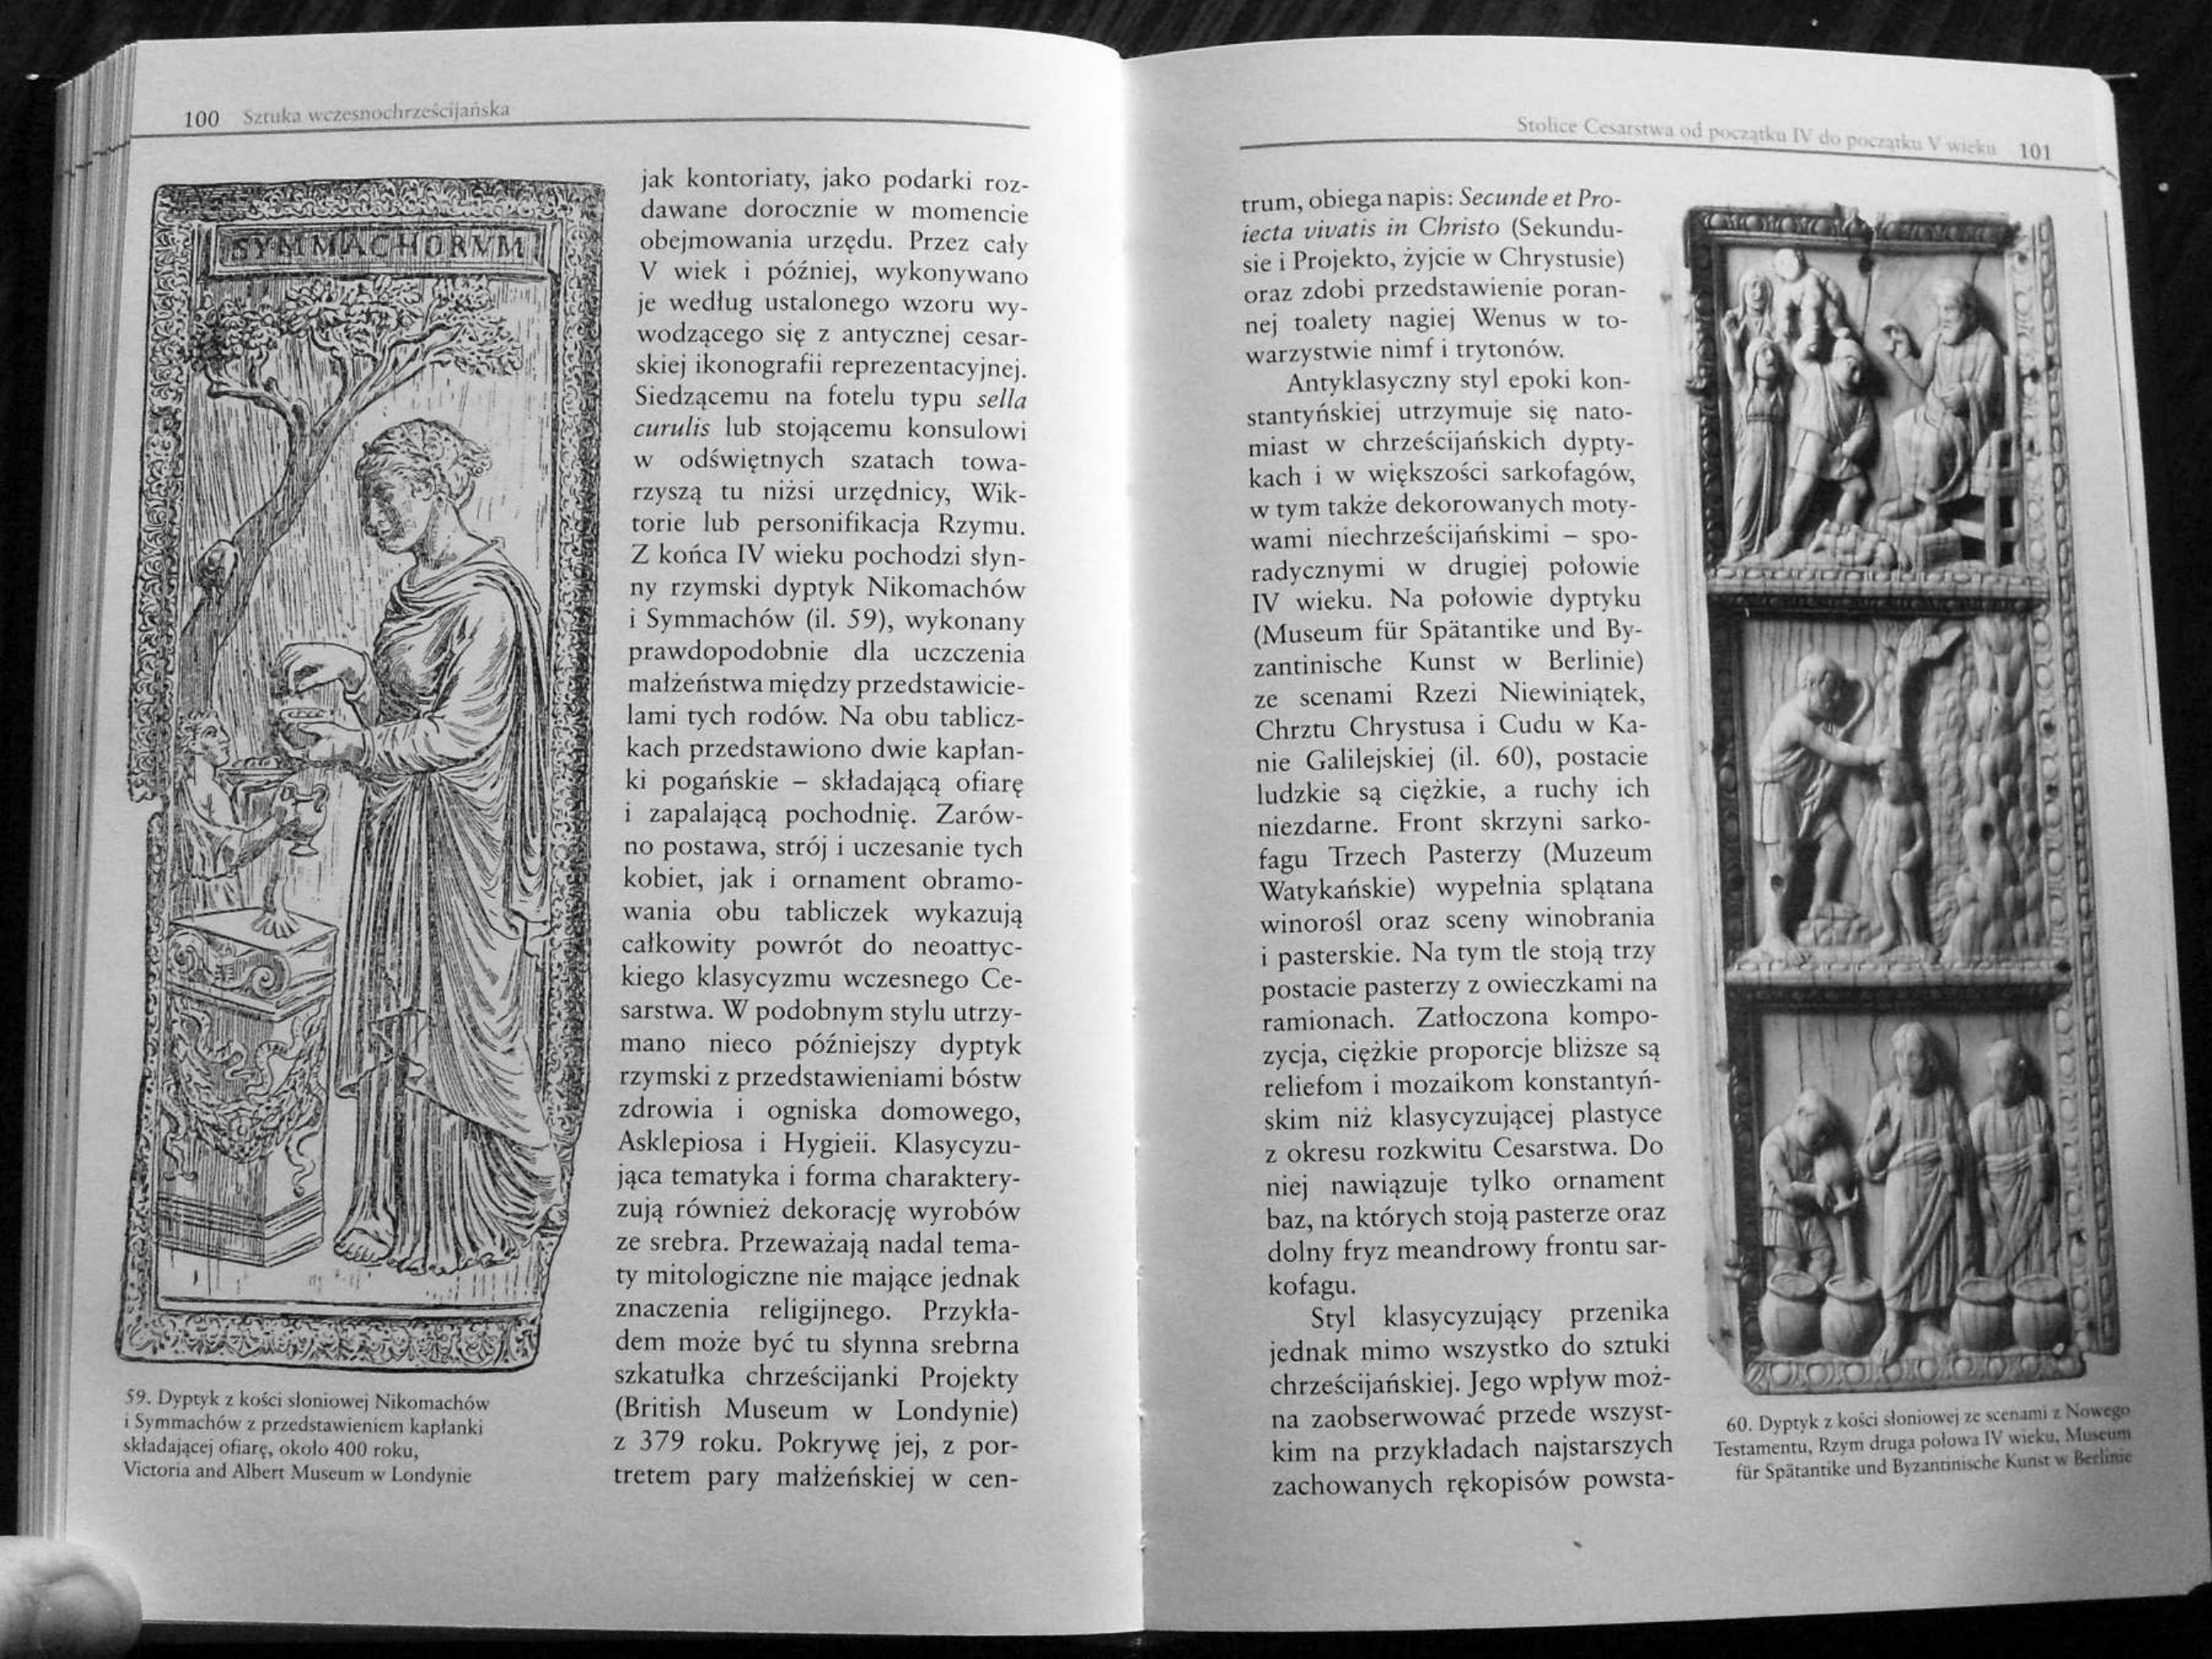 100 Sztuka wczesnochrześcijańska
SYMMACHORVM
jak kontoriaty, jako podarki roz-
dawane dorocznie w momencie
obejmowania urzędu. Przez cały
V wiek i później, wykonywano
je według ustalonego wzoru wy-
wodzącego się z antycznej cesar-
skiej ikonografii reprezentacyjnej.
Siedzącemu na fotelu typu sella
curulis lub stojącemu konsulowi
w odświętnych szatach towa-
rzyszą tu niżsi urzędnicy, Wik-
torie lub personifikacja Rzymu.
Z końca IV wieku pochodzi słyn-
ny rzymski dyptyk Nikomachów
i Symmachów (il. 59), wykonany
prawdopodobnie dla uczczenia
małżeństwa między przedstawicie-
lami tych rodów. Na obu tablicz-
kach przedstawiono dwie kapłan-
ki pogańskie – składającą ofiarę
i zapalającą pochodnię. Zarów-
no postawa, strój i uczesanie tych
kobiet, jak i ornament obramo-
wania obu tabliczek wykazują
całkowity powrót do neoattyc-
kiego klasycyzmu wczesnego Ce-
sarstwa. W podobnym stylu utrzy-
mano nieco późniejszy dyptyk
rzymski z przedstawieniami bóstw
zdrowia i ogniska domowego,
Asklepiosa i Hygieii. Klasycyzu-
jąca tematyka i forma charaktery-
zują również dekorację wyrobów
ze srebra. Przeważają nadal tema-
ty mitologiczne nie mające jednak
znaczenia religijnego. Przykła-
dem może być tu słynna srebrna
szkatułka chrześcijanki Projekty
(British Museum w Londynie)
z 379 roku. Pokrywę jej, z por-
tretem pary małżeńskiej w cen-
59. Dyptyk z kości słoniowej Nikomachów
i Symmachów z przedstawieniem kapłanki
składającej ofiarę, około 400 roku,
Victoria and Albert Museum w Londynie
Stolice Cesarstwa od początku IV do początku V wieku 101
trum, obiega napis: Secunde et Pro-
iecta vivatis in Christo (Sekundu-
sie i Projekto, żyjcie w Chrystusie)
oraz zdobi przedstawienie poran-
nej toalety nagiej Wenus w to-
warzystwie nimf i trytonów.
Antyklasyczny styl epoki kon-
stantyńskiej utrzymuje się nato-
miast w chrześcijańskich dypty-
kach i w większości sarkofagów,
w tym także dekorowanych moty-
wami niechrześcijańskimi – spo-
radycznymi w drugiej połowie
IV wieku. Na połowie dyptyku
(Museum für Spätantike und By-
zantinische Kunst w Berlinie)
ze scenami Rzezi Niewiniątek,
Chrztu Chrystusa i Cudu w Ka-
nie Galilejskiej (il. 60), postacie
ludzkie są ciężkie, a ruchy ich
niezdarne. Front skrzyni sarko-
fagu Trzech Pasterzy (Muzeum
Watykańskie) wypełnia splątana
winorośl oraz sceny winobrania
i pasterskie. Na tym tle stoją trzy
postacie pasterzy z owieczkami na
ramionach. Zatłoczona kompo-
zycja, ciężkie proporcje bliższe są
reliefom i mozaikom konstantyń-
skim niż klasycyzującej plastyce
z okresu rozkwitu Cesarstwa. Do
niej nawiązuje tylko ornament
baz, na których stoją pasterze oraz
dolny fryz meandrowy frontu sar-
kofagu.
Styl klasycyzujący przenika
jednak mimo wszystko do sztuki
chrześcijańskiej. Jego wpływ moż-
na zaobserwować przede wszyst-
kim na przykładach najstarszych
zachowanych rękopisów powsta-
60. Dyptyk z kości słoniowej ze scenami z Nowego
Testamentu, Rzym druga połowa IV wieku, Museum
für Spätantike und Byzantinische Kunst w Berlinie